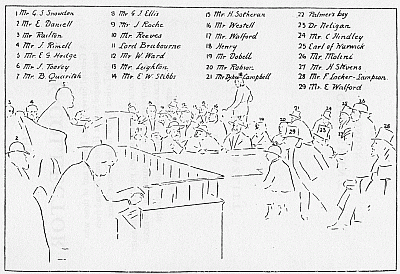 1 Mr G. J. Snowden
2 Mr E. Daniell
3 Mr Railton
4 Mr J. Rimell
5 Mr E. G. Hedge
6 Mr J. Toovey
7 Mr B. Quaritch
8 Mr G. I. Ellis
9 Mr J. Roche
10 Mr Reeves
11 Lord Brabourne
12 Mr W. Ward
13 Mr Leighton
14 Mr E. W. Stibbs
15 Mr H. Sotheran
16 Mr Westell
17 Mr Walford
18 Henry
19 Mr Dobell
20 Mr Robson
21 Mr Campbell
22 Palmer's boy
23 Dr Neligan
24 Mr C. Hindley
25 Earl of Warwick
26 Mr. Molini
27 Mr. H Stevens
28 Mr. F. Locker-Sampson
29 Mr. E. Walford